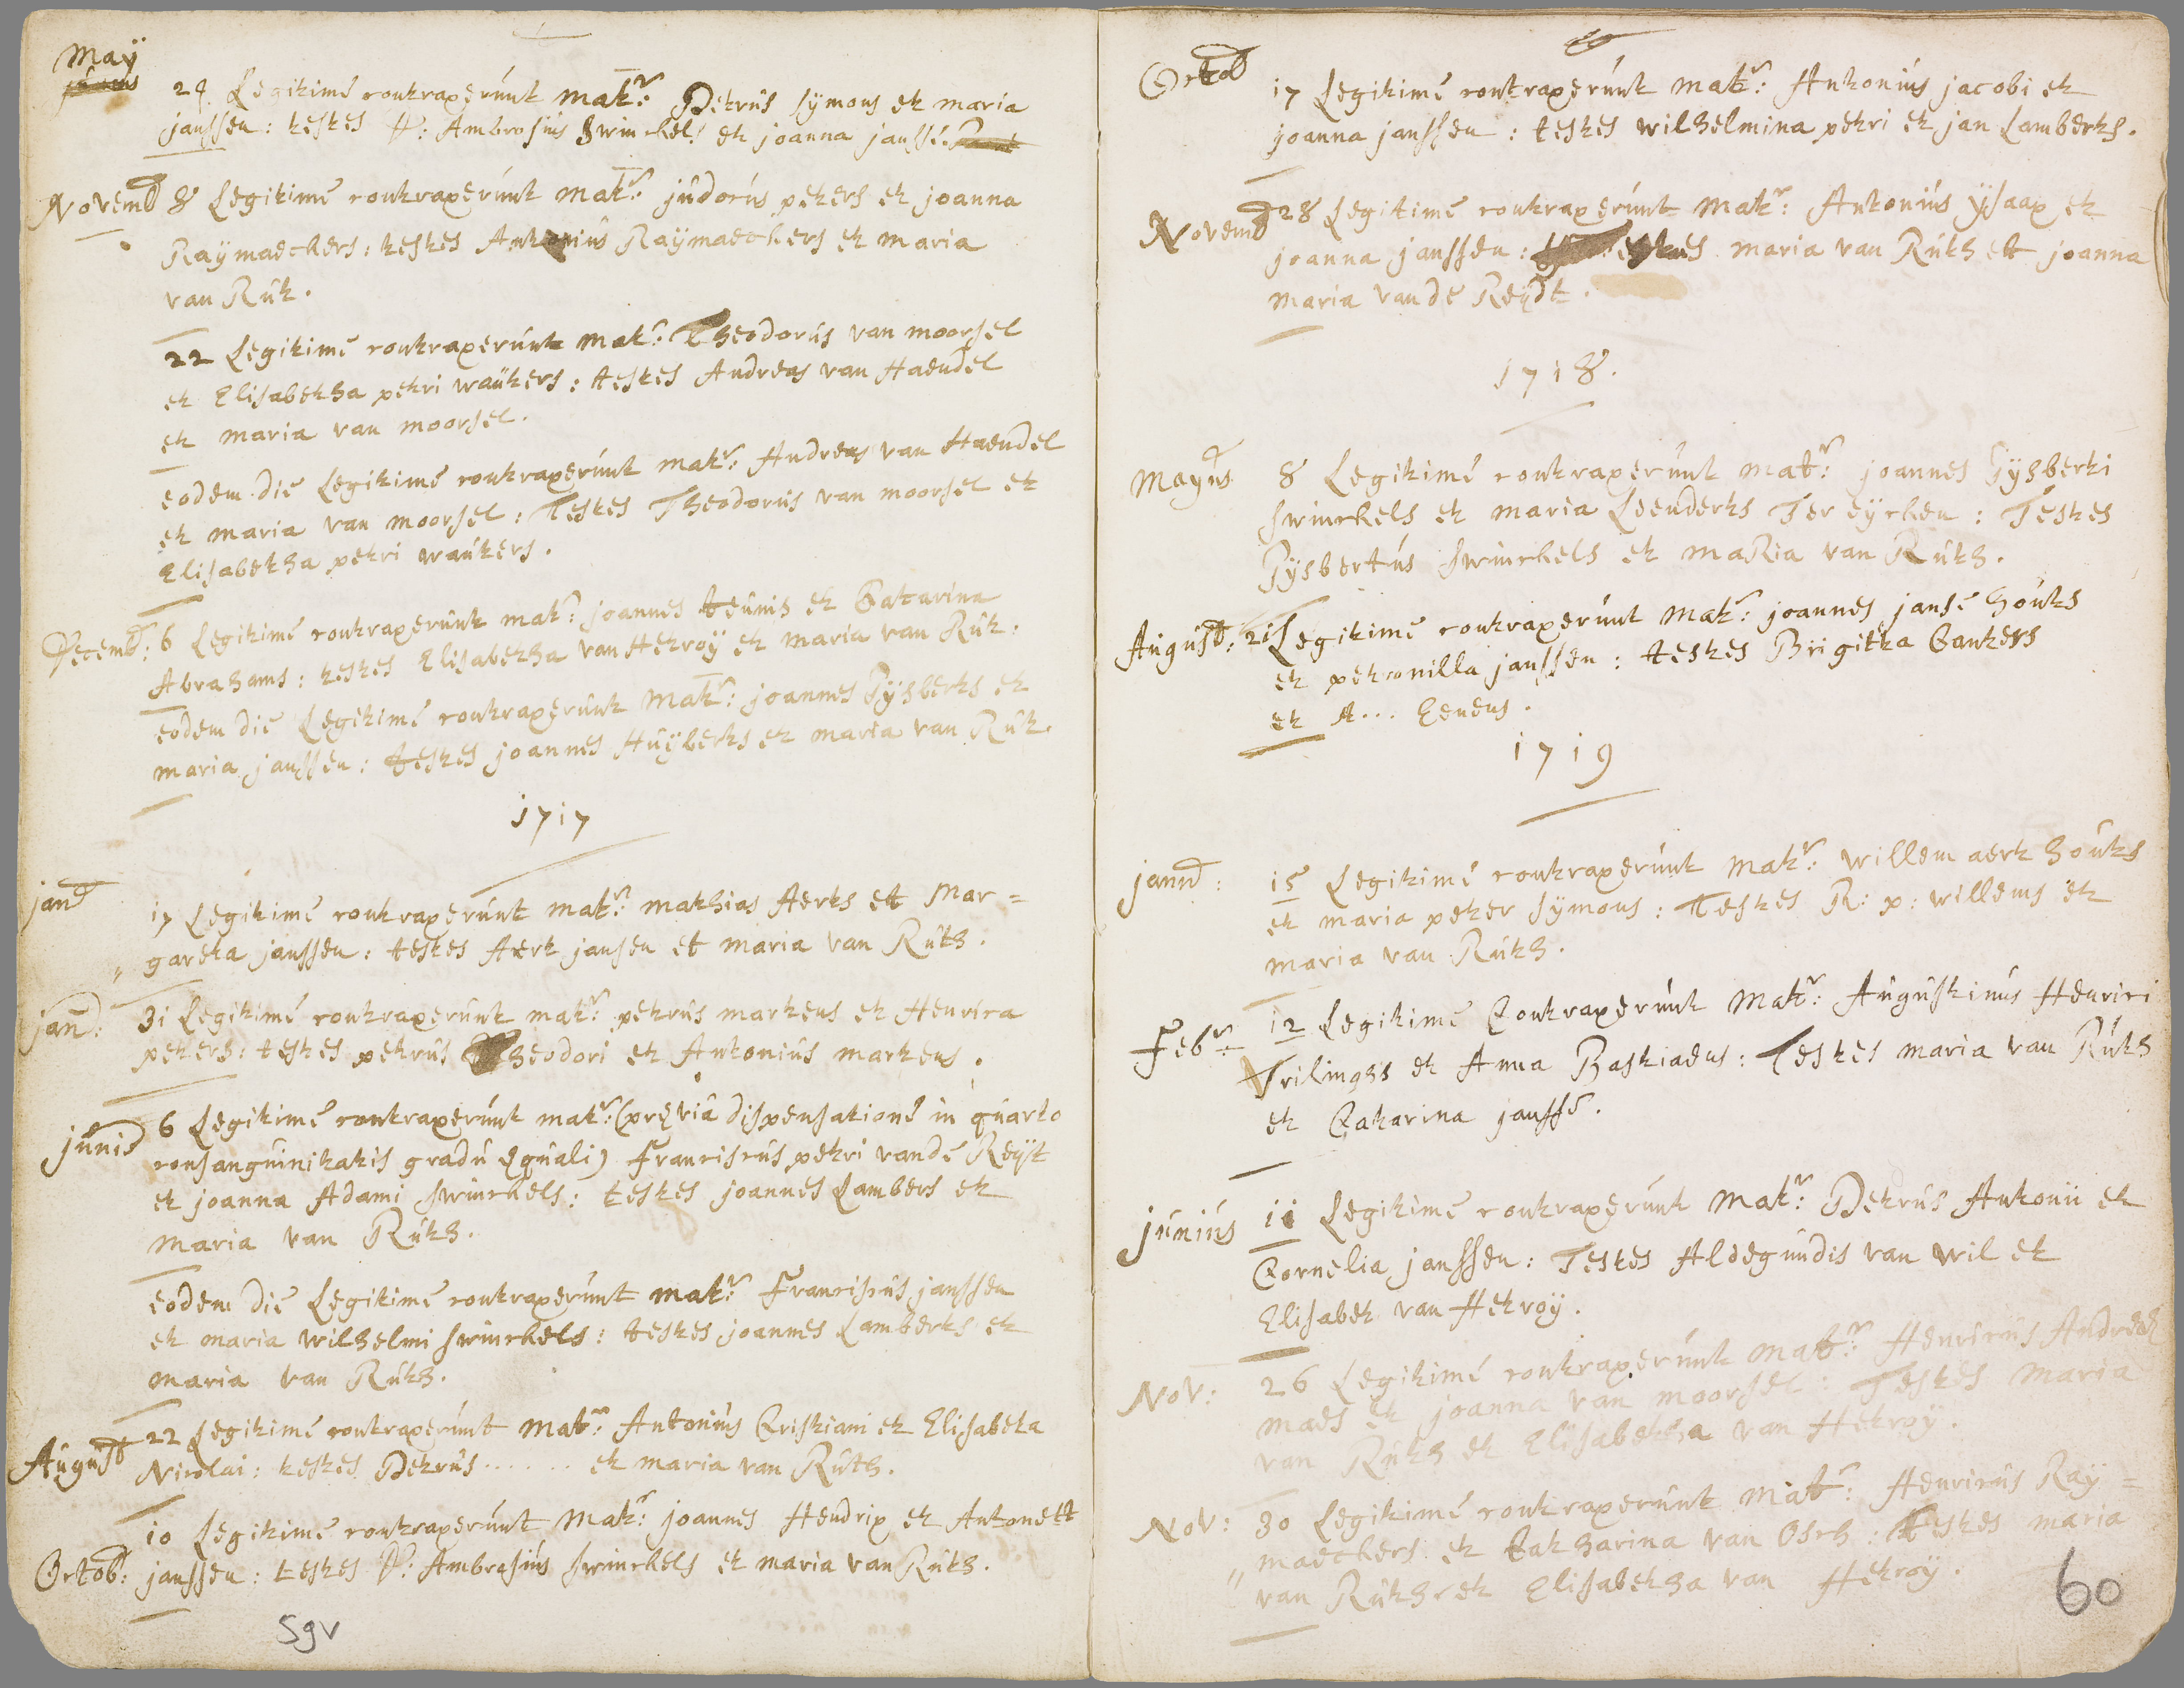 May
24 Legitimé contraxerúnt Matr: Petrús Sÿmons et maria
janssen: testes P: Ambrosiús Swinckels et joanna janssē.
Novemb 8 Legitimé contraxerúnt matr: júdocús peters et joanna
Raÿmaeckers: testes Antoniús Raÿmaeckers et maria
van Rút.
22 Legitimé contraxerúnt mat: Theodorús van moorsel
et Elisabetha petri waúters: testes Andreas van Haendel
et maria van moorsel.
eodem die Legitimé contraxerúnt matr: Andreas van Haendel
et maria van moorsel: Testes Theodorús van moorsel et
Elisabetha petri waúters.
Decemb: 6 Legitimé contraxerúnt matr: joannes teúnis et Catarina
Abrahams: testes Elisabetha van Hetroÿ et maria van Rút.
eodem die Legitimé contraxerúnt Matr: joannes Gÿsberts et
maria janssen: testes joannes Húÿberts et maria van Rút.
1717
jan 17 Legitimé contraxerúnt matr: mathias Aerts et Mar=
„ gareta janssen: testes Aert jansen et maria van Rúth.
jan: 31 Legitimé contraxerúnt matr: petrús martens et Henrica
peters: testes petrús Theodori et Antoniús martens.
júnis 6 Legitimé contraxerúnt matr: (pręviâ dispensationé in qúarto
consangúinitatis gradú ęqúali) Franciscús petri vande Reÿt
et joanna Adami swinckels: testes joannes Lambers et
Maria van Rúth.
eodem die Legitimé contraxerúnt matr: Franciscús janssen
et maria wilhelmi swinckels: testes joannes Lamberts et
maria van Rúth.
Aúgúst 22 Legitimé contraxerúnt Matr: Antoniús Cristiani et Elisabeta
Nicolai: testes Petrús ....... et maria van Rúth.
10 Legitimé contraxerúnt Matr: joannes Hendrix et Antonett
Octob: janssen: testes P: Ambrosiús swinckels et maria van Rúth.
59v
Octob 17 Legitimé contraxerúnt Matr: Antoniús jacobi et
joanna janssen: testes wilhelmina petri et jan Lamberts.
Novemb 28 Legitimé contraxerúnt Matr: Antoniús Ÿsaax et
joanna janssen: testes maria van Rúth ett joanna
maria vande Reÿdt.
1718.
Mayús 8 Legitimé contraxerúnt Matr: joannes Gÿsberti
swinckels et maria Leenderts Ter eÿcken: Testes
Gÿsbertús swinckels et maRia van Rúth.
Aúgúst: 21 Legitimé contraxerúnt Matr: joannes jansē hoúts
et petronilla janssen: testes Brigitta Canters
et A... Eenens.
1719
jann: 15 Legitimé contraxerúnt Matr: willem aert hoúts
et maria peter Sÿmons: Testes R: p: willems et
maria van Rúth.
Febr: 12 Legitimé Contraxerúnt Matr: Aúgústinús Henrici
Trilinghs et Anna Bastiaens: Testes maria van Rúth
et Catarina janssē.
júniús 11 Legitimé contraxerúnt Matr: Petrús Antonii et
Cornelia janssen: Testes Aldegúndis van wil et
Elisabet van Hetroÿ.
Nov: 26 Legitimé contraxerúnt Matr: Henricús Andreæ
maes et joanna van moorsel: Testes Maria
van Rúth et Elisabetha van Hetroÿ.
Nov: 30 Legitimé contraxerúnt Matr: Henricús Raÿ=
„ maeckers et Catharina van Osch: Testes maria
van Rúth et Elisabetha van Hetroÿ.
60